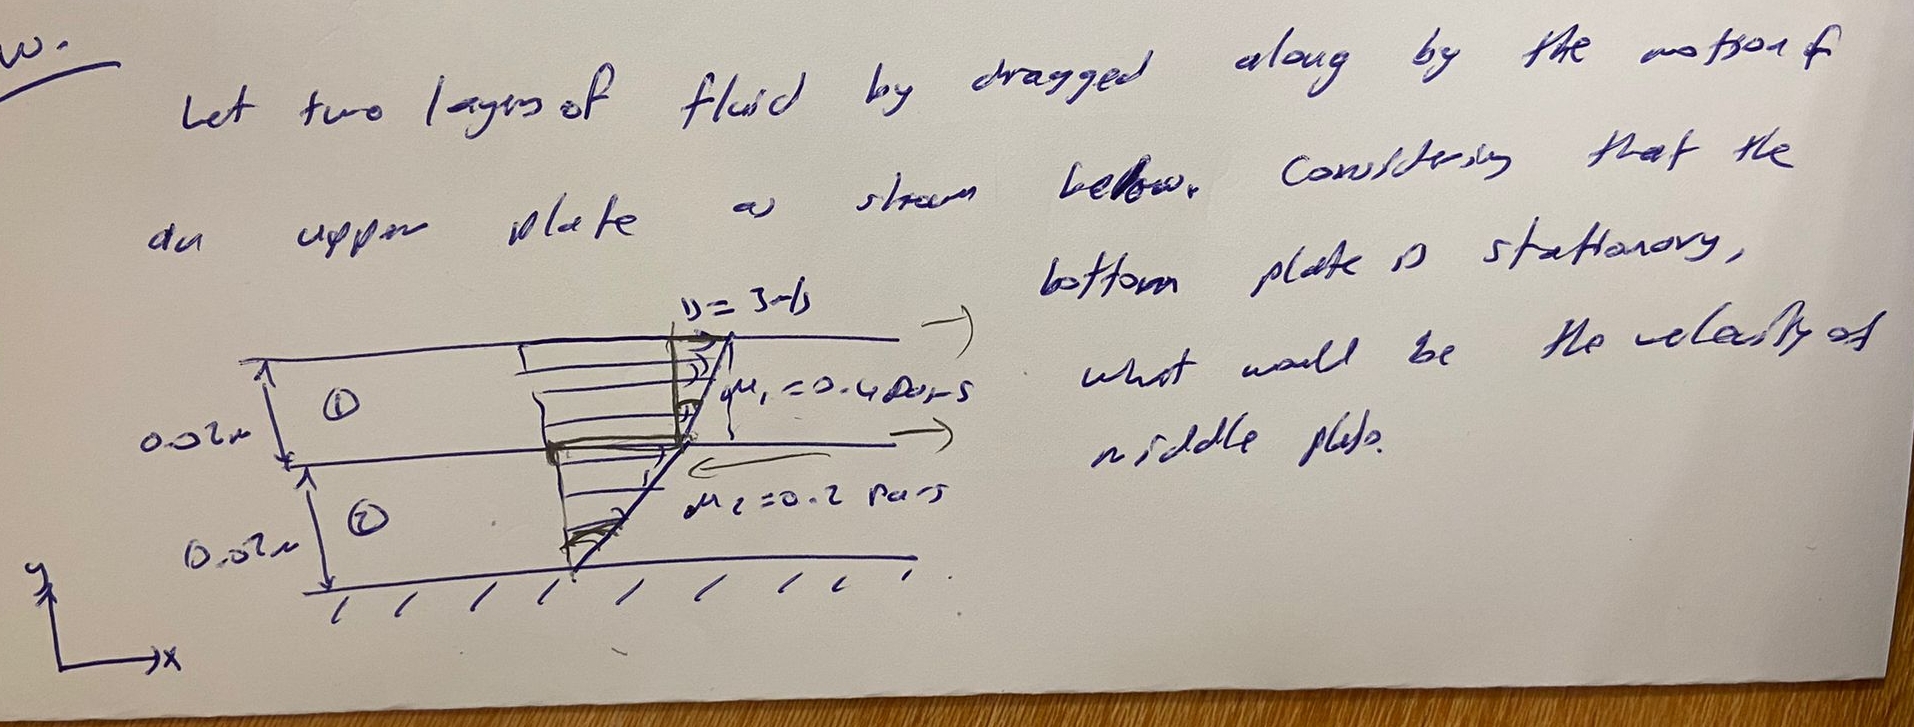 w.
Let two layers of fluid by dragged along by the motion of
an upper plate as shown below. Considering that the
bottom plate is stationary,
what would be the velocity of
middle plate.
U = 3 m/s
0.02m
①
μ₁ = 0.4 Pa-s
0.02m
②
μ₂ = 0.2 Pa-s
y
x